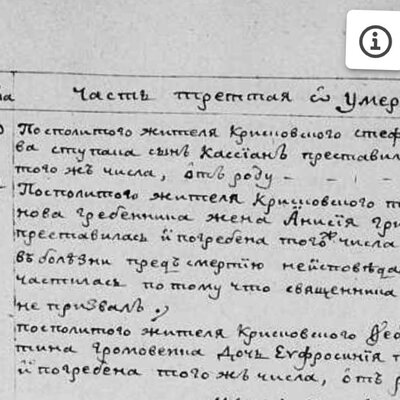 Часть треттая ѿ умер
Посполитого жителя Крисповского стеф
ва ступака сынъ Кассіанъ преставил
того жъ числа, ѿтъ роду - - -
Посполитого жителя Крисповского
нова гребенника жена Анисія Гри
преставилась й погребена того ж числа
въ болѣзни предъ смертію неисповѣда
частилась потому что священника
не призвалъ
посполитого жителя Крисповского Ѳео
тина громовенка дочь Еуфросинія п
й погребена того жъ числа, ѿтъ р